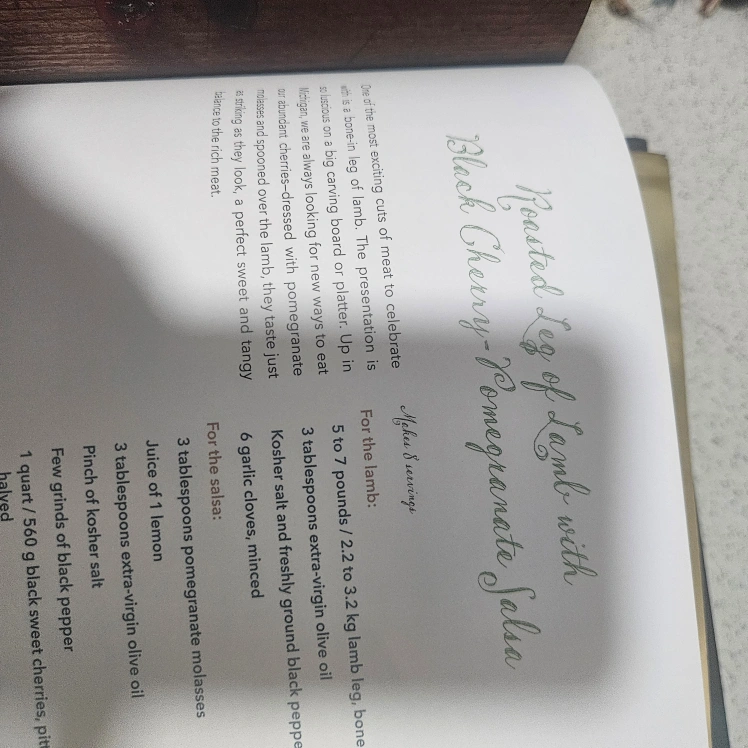 Roasted Leg of Lamb with
Black Cherry-Pomegranate Salsa
One of the most exciting cuts of meat to celebrate
with is a bone-in leg of lamb. The presentation is
so luscious on a big carving board or platter. Up in
Michigan, we are always looking for new ways to eat
our abundant cherries—dressed with pomegranate
molasses and spooned over the lamb, they taste just
as striking as they look, a perfect sweet and tangy
balance to the rich meat.
Makes 8 servings
For the lamb:
5 to 7 pounds / 2.2 to 3.2 kg lamb leg, bone
3 tablespoons extra-virgin olive oil
Kosher salt and freshly ground black peppe
6 garlic cloves, minced
For the salsa:
3 tablespoons pomegranate molasses
Juice of 1 lemon
3 tablespoons extra-virgin olive oil
Pinch of kosher salt
Few grinds of black pepper
1 quart / 560 g black sweet cherries, pitt
halved